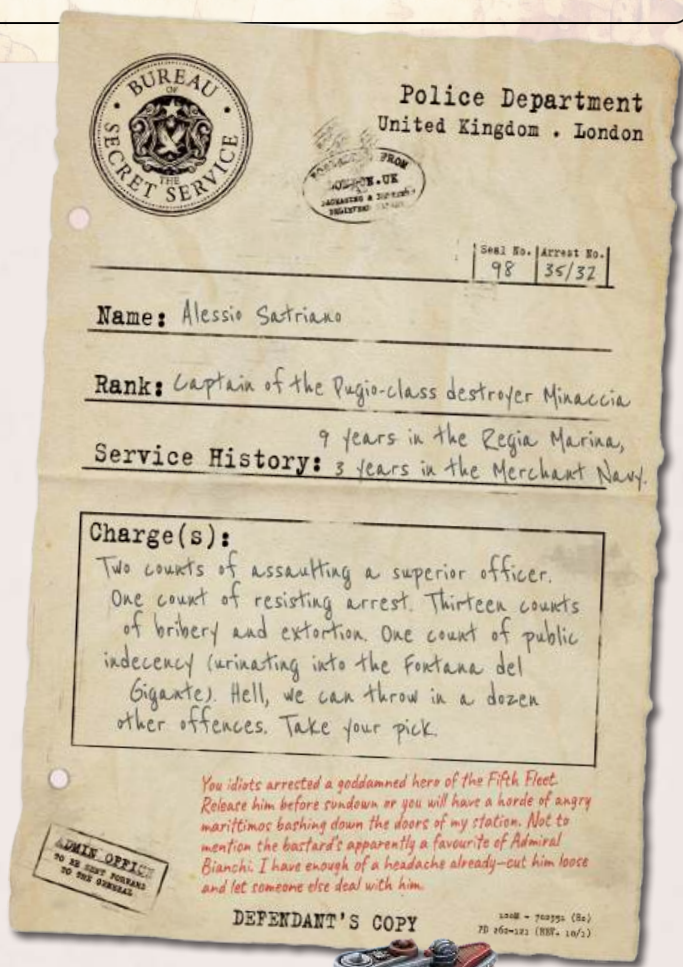 BUREAU
OF
THE
SECRET SERVICE
Police Department
United Kingdom . London
FROM
Seal No. Arrest No.
98 35/32
Name: Alessio Satriano
Rank: Captain of the Pugio-class destroyer Minaccia
9 years in the Regia Marina,
Service History: 3 years in the Merchant Navy.
Charge(s):
Two counts of assaulting a superior officer.
One count of resisting arrest. Thirteen counts
of bribery and extortion. One count of public
indecency (urinating into the Fontana del
Gigante). Hell, we can throw in a dozen
other offences. Take your pick.
You idiots arrested a goddamned hero of the Fifth Fleet.
Release him before sundown or you will have a horde of angry
marittimos bashing down the doors of my station. Not to
mention the bastard's apparently a favourite of Admiral
Bianchi. I have enough of a headache already—cut him loose
and let someone else deal with him.
ADMIN OFFICE
TO BE SENT FORWARD
TO THE GENERAL
DEFENDANT'S COPY